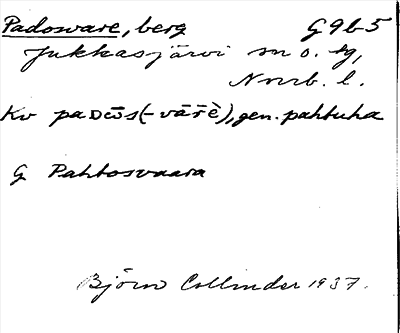 Padosware, berg G9b5
Jukkasjärvi sn o. tg,
Norrb. l.
Kv paᴅω̄s(-vār̄è), gen. pahtuha
G Pahtosvaara
Björn Collinder 1937.